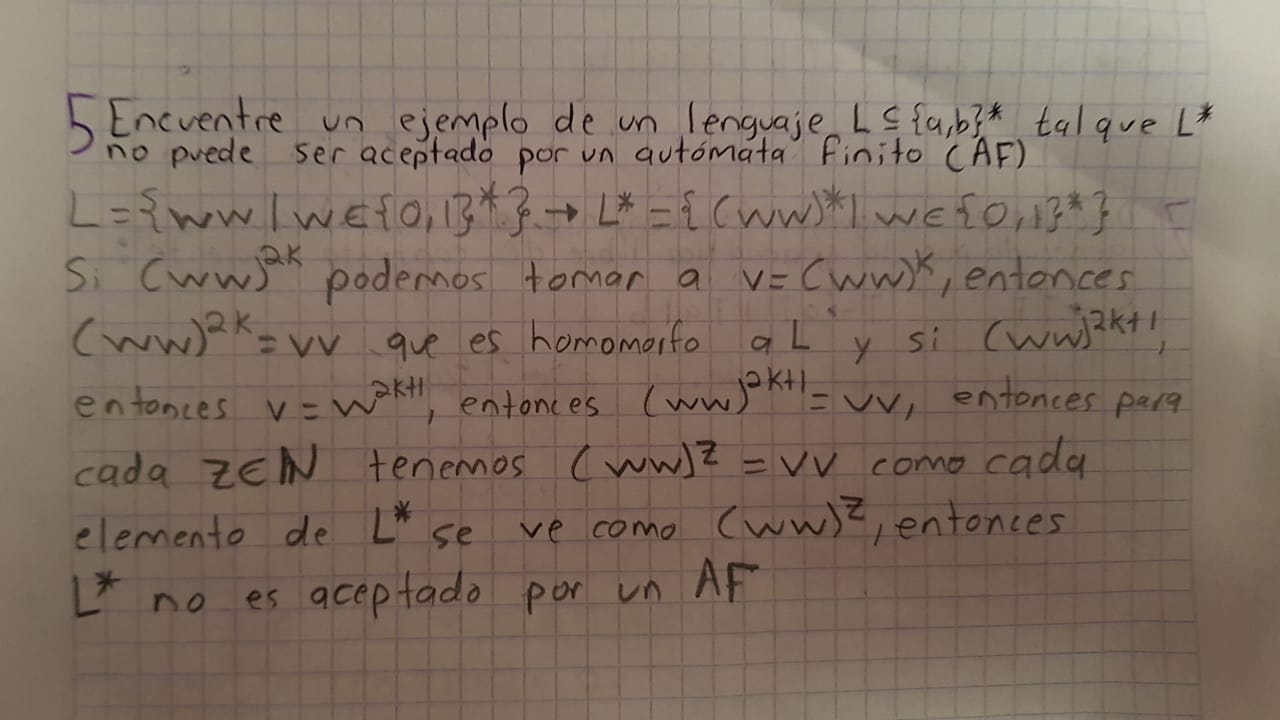 5 Encuentre un ejemplo de un lenguaje L ⊆ {a,b}* tal que L*
no puede ser aceptado por un autómata finito (AF)
L = {ww | w ∈ {0,1}*} → L* = { (ww)* | w ∈ {0,1}* }
Si (ww)^2k podemos tomar a v = (ww)^k, entonces
(ww)^2k = vv que es homomorfo a L y si (ww)^2k+1,
entonces v = w^2k+1, entonces (ww)^2k+1 = vv, entonces para
cada z ∈ ℕ tenemos (ww)^z = vv como cada
elemento de L* se ve como (ww)^z, entonces
L* no es aceptado por un AF